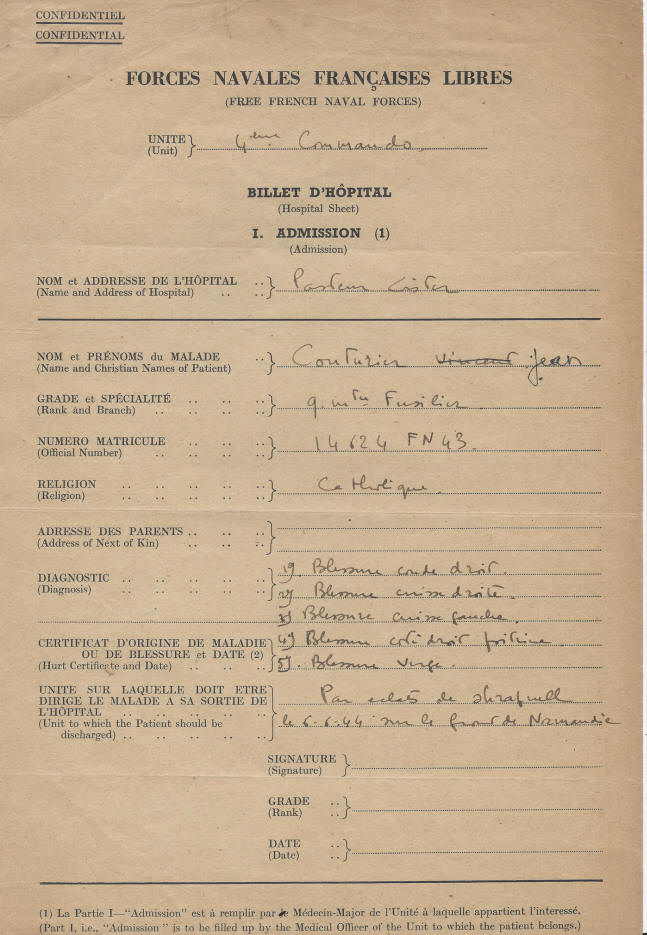 CONFIDENTIEL
CONFIDENTIAL
FORCES NAVALES FRANÇAISES LIBRES
(FREE FRENCH NAVAL FORCES)
UNITE } 4ème Commando.
(Unit)
BILLET D'HÔPITAL
(Hospital Sheet)
I. ADMISSION (1)
(Admission)
NOM et ADDRESSE DE L'HÔPITAL .. } Pasteur Lister
(Name and Address of Hospital) .. ..
NOM et PRÉNOMS du MALADE .. } Couturier Vincent Jean
(Name and Christian Names of Patient)
GRADE et SPÉCIALITÉ .. .. .. } q. mtre Fusilier
(Rank and Branch) .. .. .. ..
NUMERO MATRICULE .. .. .. } 14624 FN43.
(Official Number) .. .. .. ..
RELIGION .. .. .. .. .. } Catholique.
(Religion) .. .. .. .. ..
ADRESSE DES PARENTS .. .. .. }
(Address of Next of Kin) .. .. ..
1) Blessure coude droit.
DIAGNOSTIC .. .. .. .. .. }
(Diagnosis) .. .. .. .. ..
2) Blessure cuisse droite.
3) Blessure cuisse gauche.
CERTIFICAT D'ORIGINE DE MALADIE } 4) Blessure coté droit poitrine
OU DE BLESSURE et DATE (2)
(Hurt Certificate and Date) .. .. .. 5). Blessure verge.
UNITE SUR LAQUELLE DOIT ETRE } Par eclats de shrapnell
DIRIGE LE MALADE A SA SORTIE DE
L'HÔPITAL .. .. .. .. ..
(Unit to which the Patient should be le 6.6.44 sur le front de Normandie
discharged) .. .. .. .. ..
SIGNATURE }
(Signature)
GRADE .. }
(Rank) ..
DATE .. }
(Date) ..
(1) La Partie I—"Admission" est à remplir par le Médecin-Major de l'Unité à laquelle appartient l'interessé.
(Part I, i.e., "Admission" is to be filled up by the Medical Officer of the Unit to which the patient belongs.)